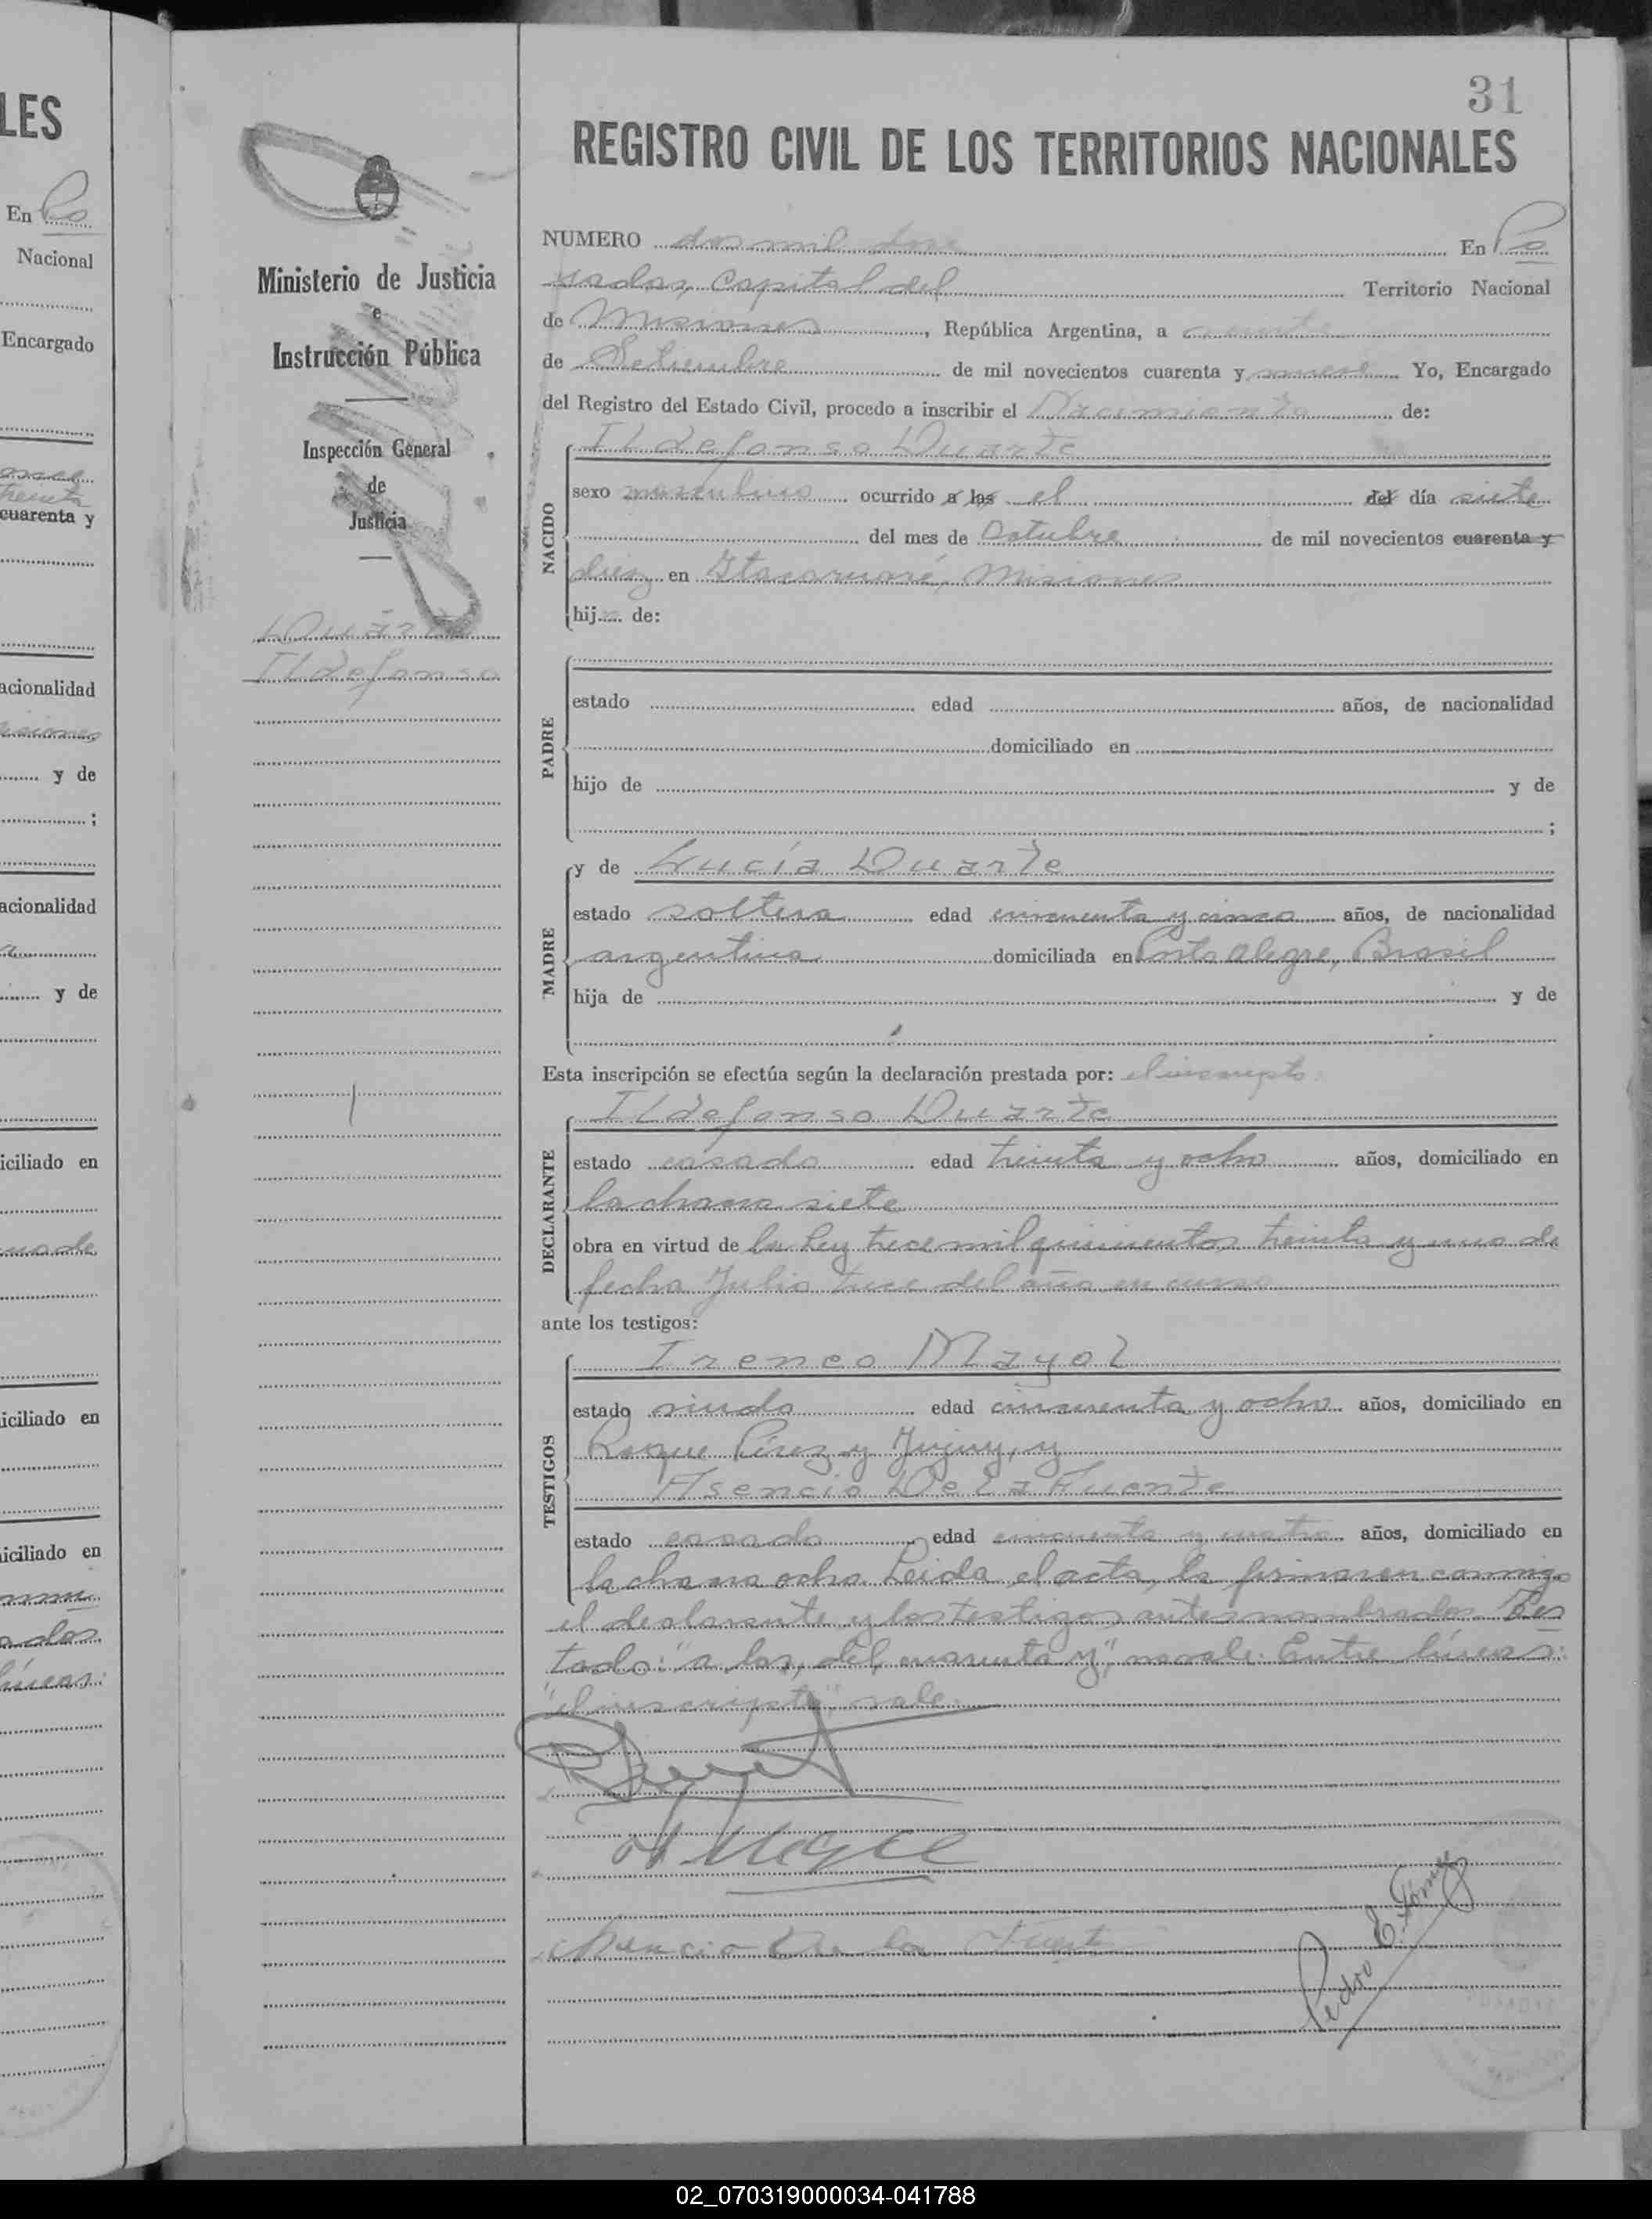 LES
En Po
Nacional
Encargado
cuarenta y
acionalidad
y de
;
acionalidad
y de
iciliado en
iciliado en
iciliado en
líneas:
31
Ministerio de Justicia
e
Instrucción Pública
Inspección General
de
Justicia
Duarte
Ildefonso
REGISTRO CIVIL DE LOS TERRITORIOS NACIONALES
NUMERO dos mil doce En Po
sadas, Capital del Territorio Nacional
de Misiones, República Argentina, a
de Setiembre de mil novecientos cuarenta y nueve Yo, Encargado
del Registro del Estado Civil, procedo a inscribir el Nacimiento de:
NACIDO
Ildefonso Duarte
sexo masculino ocurrido a las el del día siete
del mes de Octubre de mil novecientos cuarenta y
diez en Itacaruaré, Misiones
hij de:
PADRE
estado edad años, de nacionalidad
domiciliado en
hijo de y de
;
MADRE
y de Lucía Duarte
estado soltera edad cincuenta y cinco años, de nacionalidad
argentina domiciliada en Porto Alegre, Brasil
hija de y de
Esta inscripción se efectúa según la declaración prestada por: el inscripto
DECLARANTE
Ildefonso Duarte
estado casado edad treinta y ocho años, domiciliado en
la chacra siete
obra en virtud de la Ley trece mil quinientos treinta y uno de
fecha Julio trece del año en curso
ante los testigos:
TESTIGOS
Ireneo Mayol
estado viudo edad cincuenta y ocho años, domiciliado en
Roque Pérez y Jujuy, y
Asencio De La Fuente
estado casado edad cincuenta y cuatro años, domiciliado en
la chacra ocho. Leída el acta, la firmaron conmigo
el declarante y los testigos antes nombrados. Tes
tado: "a las, del, cuarenta y", no vale. Entre líneas:
"el inscripto" vale.
Asencio De la Fuente
Pedro E. Gómez
02_070319000034-041788